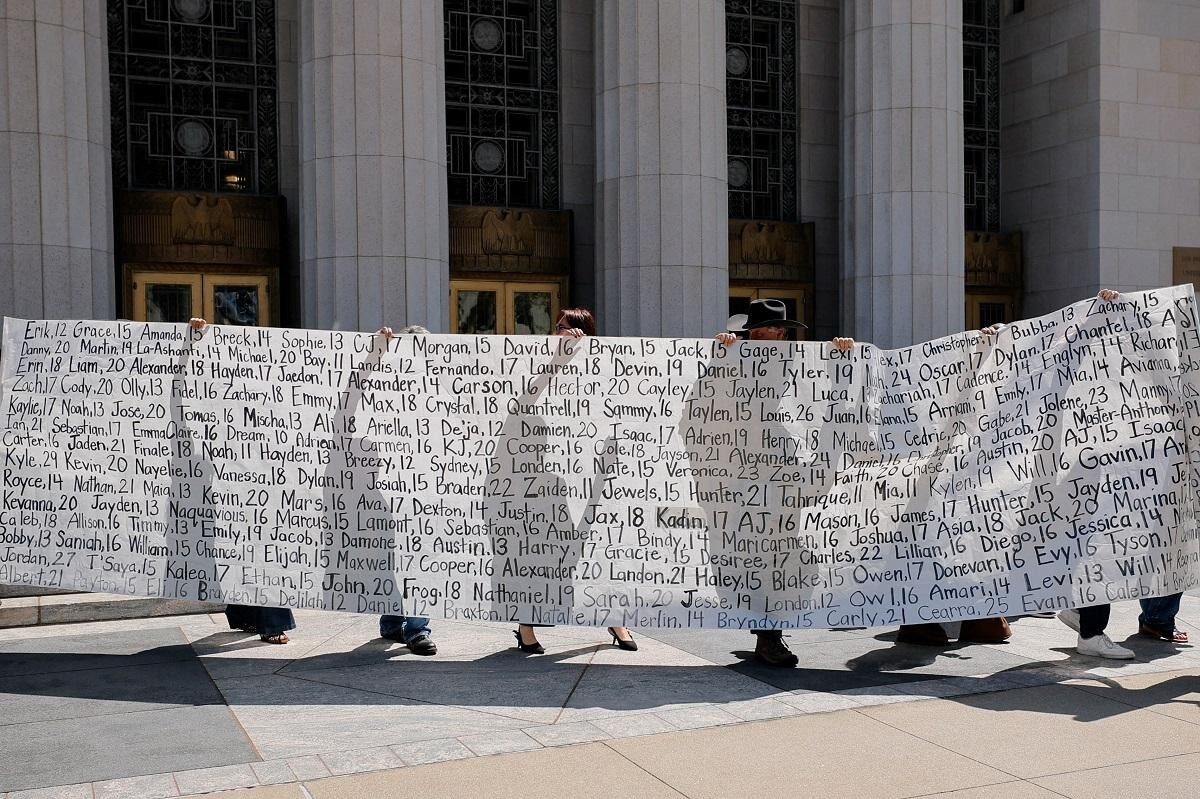 Erik, 12 Grace, 15 Amanda, 15 Breck, 14 Sophie, 13 CJ, 17 Morgan, 15 David, 16 Bryan, 15 Jack, 15 Gage, 14 Lexi, 15 Alex, 17 Christopher, Bubba, 13 Zachary, 15
Danny, 20 Martin, 19 La-Ashanti, 14 Michael, 20 Bay, 11 Landis, 12 Fernando, 17 Lauren, 18 Devin, 19 Daniel, 16 Tyler, 19 24 Oscar, 17 Dylan, 17 Chantel, 18
Erin, 18 Liam, 20 Alexander, 18 Hayden, 17 Jaedon, 17 Alexander, 14 Carson, 16 Hector, 20 Cayley, 15 Jaylen, 21 Luca, 17 Cadence, 14 Englyn, 14 Richar
Zach, 17 Cody, 20 Olly, 13 Fidel, 16 Zachary, 18 Emmy, 17 Max, 18 Crystal, 18 Quantrell, 19 Sammy, 16 Taylen, 15 Louis, 26 Juan, 15 Arriam, 9 Emily, 17 Mia, 14 Avianna,
Kaylie, 17 Noah, 13 Jose, 20 Tomas, 16 Mischa, 13 Ali, 18 Ariella, 13 De'ja, 12 Damien, 20 Isaac, 17 Adrien, 19 Henry, 18 Michael, 15 Cedric, 20 Gabe, 21 Jolene, 23 Manny
Ian, 21 Sebastian, 17 EmmaClaire, 16 Dream, 10 Adrien, 14 Carmen, 16 KJ, 20 Cooper, 16 Cole, 18 Jayson, 21 Alexander, 14 Daniel, 16 Christopher, 16 Austin, 20 Jacob, 20 Master-Anthony,
Carter, 16 Jaden, 21 Finale, 18 Noah, 11 Hayden, 13 Breezy, 12 Sydney, 15 Londen, 16 Nate, 15 Veronica, 23 Zoe, 14 Faith, 23 Chase, 16 AJ, 15 Isaac
Kyle, 29 Kevin, 20 Nayelie, 16 Vanessa, 18 Dylan, 19 Josiah, 15 Brader, 22 Zaiden, 11 Jewels, 15 Hunter, 21 Tahrique, 11 Mia, 11 Kylen, 19 Will, 16 Gavin, 17
Royce, 14 Nathan, 21 Maia, 13 Kevin, 20 Mars, 16 Ava, 17 Dexton, 14 Justin, 18 Jax, 18 Kadin, 17 AJ, 16 Mason, 16 James, 17 Hunter, 15 Jayden, 19
Kevanna, 20 Jayden, 13 Naquavious, 16 Marcus, 15 Lamont, 16 Sebastian, 16 Amber, 17 Bindy, 14 Mari Carmen, 16 Joshua, 17 Asia, 18 Jack, 20 Marina,
Caleb, 18 Allison, 16 Timmy, 13 Emily, 19 Jacob, 13 Damone, 18 Austin, 13 Harry, 17 Gracie, 15 Desiree, 17 Charles, 22 Lillian, 16 Diego, 16 Jessica, 14
Bobby, 13 Saniah, 16 William, 15 Chance, 19 Elijah, 15 Maxwell, 17 Cooper, 16 Alexander, 20 Landon, 21 Haley, 15 Blake, 15 Owen, 17 Donevan, 16 Evy, 16 Tyson, 17
Jordan, 27 T'Saya, 15 Kalea, 17 Ethan, 15 John, 20 Frog, 18 Nathaniel, 19 Sarah, 20 Jesse, 19 London, 12 Owl, 16 Amari, 14 Levi, 13 Will, 14
Albert, 21 Payton, 15 Eli, 16 Brayden, 15 Delilah, 12 Daniel, 12 Braxton, 12 Natalie, 17 Merlin, 14 Bryndyn, 15 Carly, 21 Cearra, 25 Evan, 16 Caleb, 16